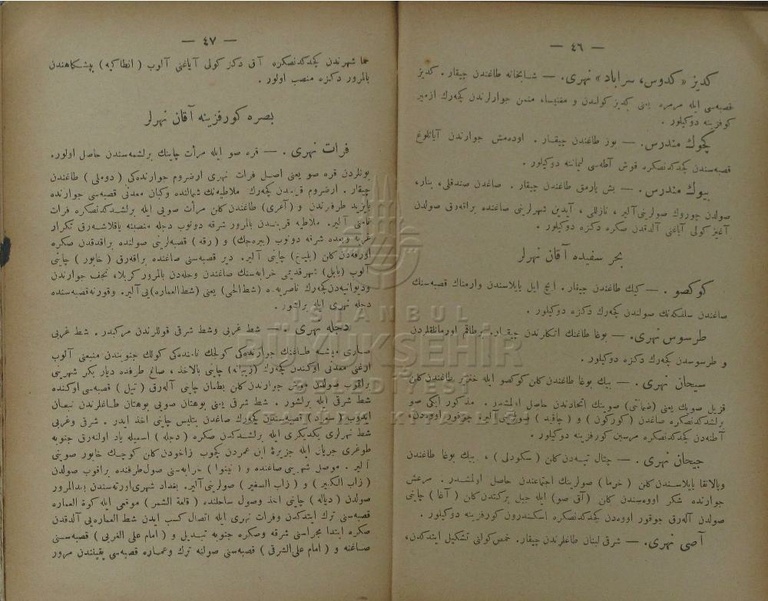 — ٤٦ —
كديز « كدوس، سراباد » نهرى. — شابخانه طاغندن چيقار. كديز
قصبه‌سى ايله مرمره يعنى كديز كولندن و مغنيسا، منمن جوارلرندن كچه‌رك ازمير
كورفزينه دوكيلور.
كچوك مندرس. — بوز طاغندن چيقار. اوده‌مش جوارندن آياثلوغ
قصبه‌سندن كچدكدنصكره قوش آطه‌سى ليماننه دوكيلور.
بيوك مندرس. — بش پارمق طاغندن چيقار. صاغدن صندقلى، بناره
صولدن چوروك صولرينى آلير، نازللى، آيدين شهرلرينى صاغنده براقه‌رق صولدن
آغيز كولى آياغنى آلدقدن صكره دكزه دوكيلور.
بحر سفيده آقان نهرلر
كوكصو. — كيك طاغندن چيقار. ايچ ايل يايلاسندن وارمناك قصبه‌سنك
صاغندن سلفكه‌نك صولندن كچه‌رك دكزه دوكيلور.
طرسوس نهرى. — بوغا طاغنك اتكلرندن چيقار. اورمانلقلردن
و طرسوسدن كچه‌رك دكزه دوكيلور.
سيحان نهرى. — بيك بوغا طاغندن كلن كوكصو ايله خنزير طاغندن كلن
قزيل صويك يعنى ( ضمانتى ) صوينك اتحادندن حاصل اولمشدر. مذكور ايكى صو
برلشدكدنصكره صاغدن ( كوركون ) و ( چاقيد ) صولرينى آله‌رق چوقور اوه‌دن،
آطنه‌دن كچدكدنصكره مرسين كورفزينه دوكيلور.
جيحان نهرى. — چتال تپه‌دن كلن ( سكودلى ) ، بيك بوغا طاغندن
ويالانقا يايلاسندن كلن ( خرما ) صولرينك اجتماعندن حاصل اولمشدر. مرعش
جوارنده شكر اووه‌سندن كلن ( آق صو ) ايله جبل بركتدن كلن ( آغا ) چاينى
صولدن آله‌رق چوقور اووه‌دن كچدكدنصكره اسكندرون كورفزينه دوكيلور.
آصى نهرى. — شرقى لبنان طاغلرندن چيقار. حمص كولنى تشكيل ايتدكدن،
— ٤٧ —
حما شهرندن كچدكدنصكره آق دكز كولى آياغنى آلوب ( انطاكيه ) پيشكاهندن
بالمرور دكزه منصب اولور.
بصره كورفزينه آقان نهرلر
فرات نهرى. — قره صو ايله مرأت چاينك برلشمه‌سندن حاصل اولور.
بونلردن قره صو يعنى اصل فرات نهرى ارضروم جوارنده‌كى ( دوملى ) طاغندن
چيقار. ارضروم قربندن كچه‌رك ملاطيه‌نك شمالنده وكبان معدنى قصبه‌سى جوارنده
بايزيد طرفرندن و ( آغرى ) طاغندن كلن مرأت صويى ايله برلشدكدنصكره فرات
نامنى آلير. ملاطيه قربندن بالمرور شرقه دونوب دجله منصبنه ياقلاشه‌رق تكرار
غربه وبعده شرقه دونوب ( بيره‌جك ) و ( رقه ) قصبه‌لرينى صولنده براقدقدن صكره
اورفه‌دن كلن ( بليخ ) چاينى آلير. دير قصبه‌سنى صاغنده براقه‌رق ( خابور ) چاينى
آلوب ( بابل ) شهر قديمى خرابه‌سنك صاغندن وحله‌دن بالمرور كربلا، نجف جوارندن
وديوانيه‌دن كچه‌رك ناصريه‌ده ( شط الحى ) يعنى ( شط العماره ) يى آلير. وقورنه قصبه‌سنده
دجله نهرى ايله برلشور.
دجله نهرى. — شط غربى وشط شرقى قوللرندن مركبدر. شط غربى
جوارنده‌كى كولجك نامنده‌كى كولك جنوبندن منبعى آلوب
ارغنى معدنى اوكندن كچه‌رك ( زبنه ) چاينى بالاخذ، صاغ طرفده ديار بكر شهرينى
براقوب صولدن موش جوارندن كلن بطمان چاينى آله‌رق ( تيل ) قصبه‌سى اوكنده
شط شرقى ايله برلشور. شط شرقى يعنى بوهتان صويى بوهتان طاغلرندن نبعان
ايدوب ( سعرد ) قصبه‌سندن كچه‌رك صاغدن بتليس چاينى اخذ ايدر. شرقى وغربى
شط نهرلرى يكديكرى ايله برلشدكدن صكره ( دجله ) اسميله ياد اولنه‌رق جنوبه
طوغرى جريان ايله جزيرهٔ ابن عمردن كچوب زاخودن كلن كوچك خابور صوينى
آلير. موصل شهرينى صاغنده و ( نينوا ) خرابه‌سنى صول طرفنده براقوب صولدن
( زاب الكبير ) و ( زاب الصغير ) صولرينى آلير. بغداد شهرى اورته‌سندن بعدالمرور
صولدن ( دياله ) چاينى اخذ وصول ساحلنده ( قلعة الشمر ) موقعى ايله كوة العماره
قصبه‌سنى ترك ايتدكدن وفرات نهرى ايله اتصال كسب ايدن شط العماره‌يى آلدقدن
صكره ابتدا مجراسنى شرقه وصكره جنوبه تبديل و ( امام على الغربى ) قصبه‌سنى
صاغنه و ( امام على الشرقى ) قصبه‌سنى صولنه ترك وعماره قصبه‌سى يقينندن مرور
ISTANBUL
BÜYÜKŞEHİR
BELEDİYESİ